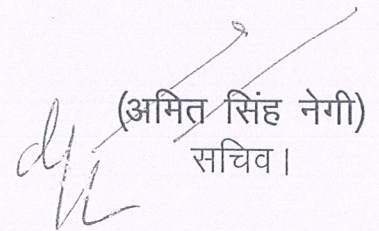 (अमित सिंह नेगी)
सचिव।